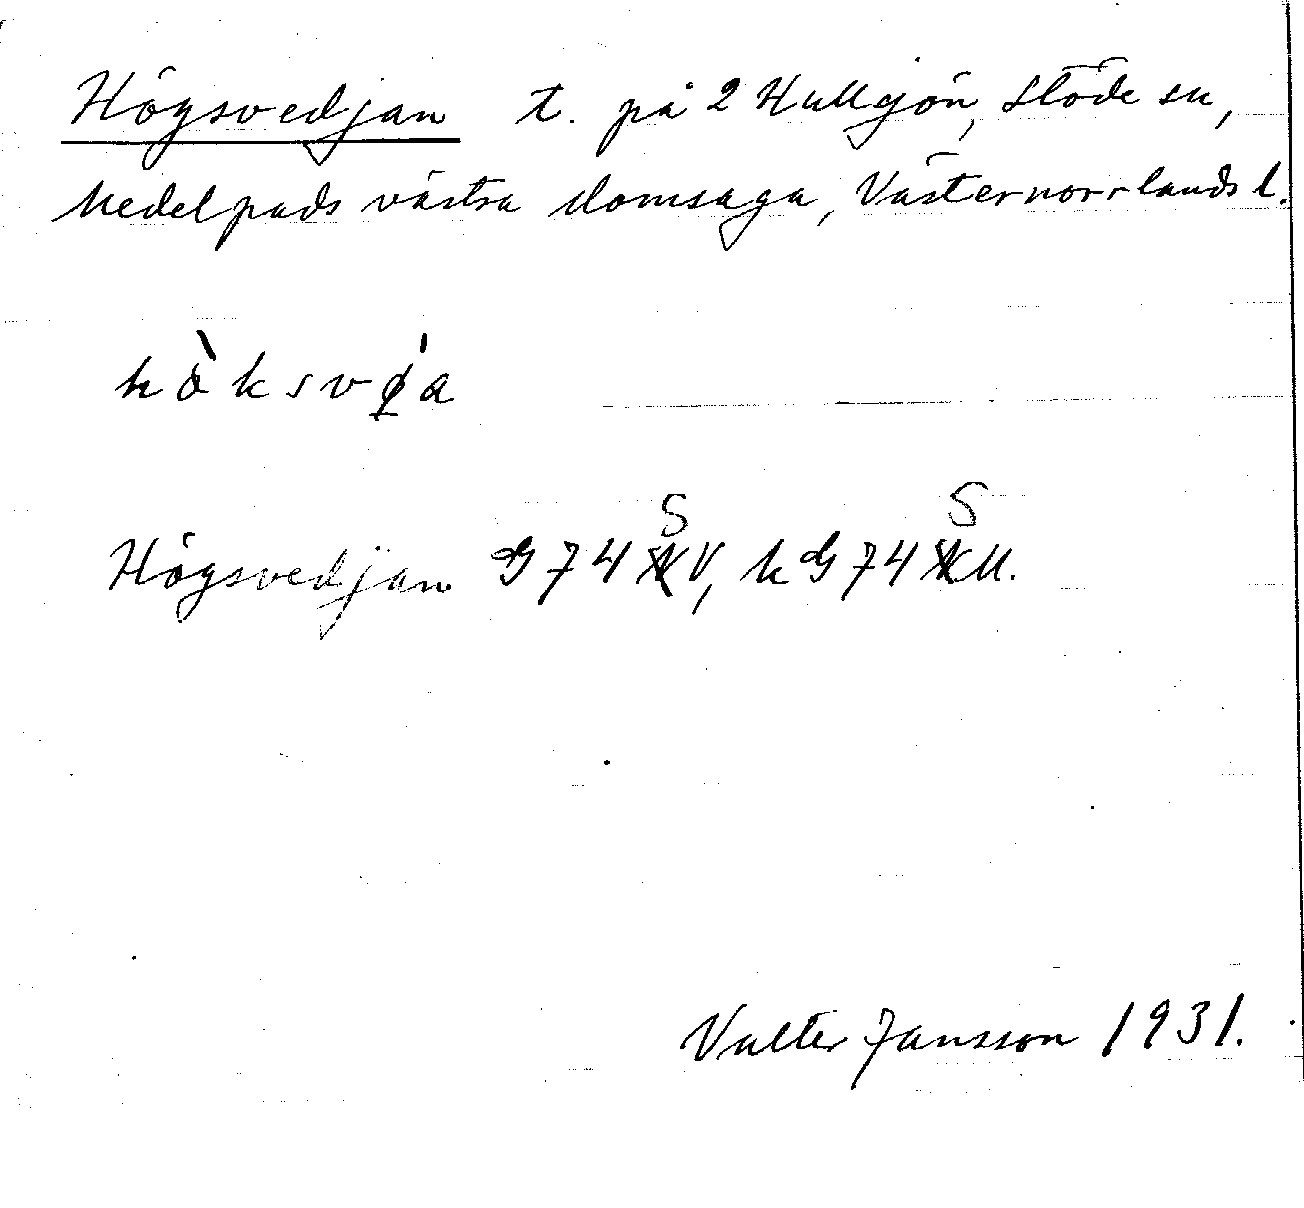 Högsvedjan t. på 2 Hullsjön, Stöde sn,
Medelpads västra domsaga, Västernorrlands l.
Högsvedjan G 74 S V, k G 74 S U.
Valter Jansson 1931.